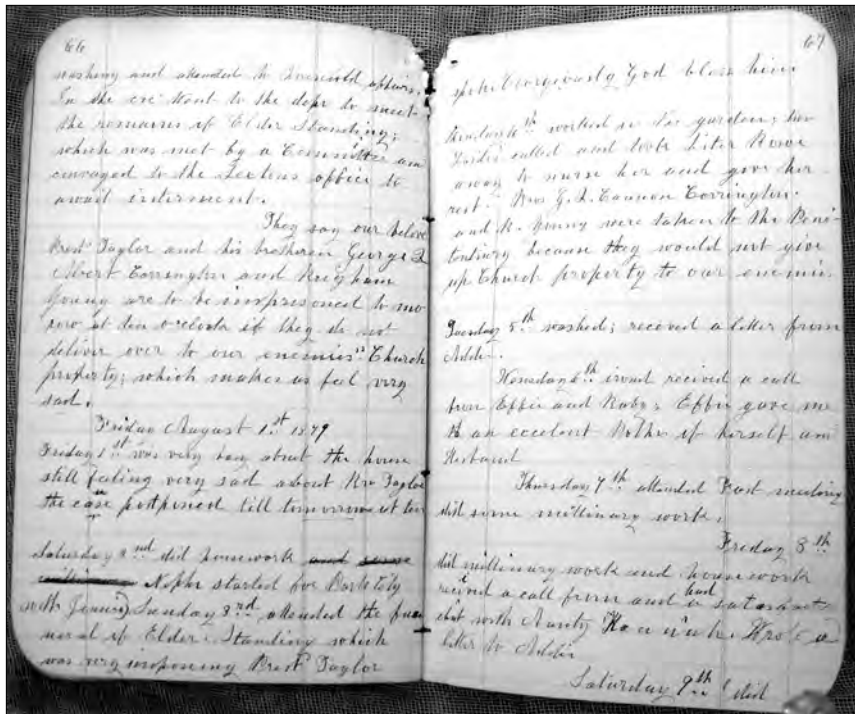 66
washing and attended to household affairs.
In the eve Went to the depo to meet
the remains of Elder Standing;
which was met by a Committee and
convayed to the Sextons office to
await interment.
They say our belove
Prest Taylor and his bretheren George Q
Albert Carrington and Brigham
Young are to be impresoned to mo
row at ten oclock if they do not
deliver over to our enemies Church
property; which makes us feel very
sad.
Friday August 1st 1879
Friday 1st was very busy about the house
still feeling very sad about Bro Taylor
the case postponed till tomorrow at ten
Saturday 2nd did housework and some
millinary Nephi started for Park City
with Jennie) Sunday 3rd attended the fune
neral of Elder Standing which
was very imposing Prest Taylor
67
spoke God bless him
4th worked in the garden;
called and took
away to nurse her and give her
rest. Bros G. Q. Cannon Carrington
and B. Young were taken to the Peni
tentiary because they would not give
up Church property to our enemies
Tuesday 5th washed; recieved a letter from
Addie.
Wensday 6th recieved a call
from Effie and Baby; Effie gave me
an excelent of herself and
Husband
Thursday 7th attended Fast meeting
did some millinary work.
Friday 8th
did millinary work and housework
recieved a call from and had a
chat with Aunty Wrote a
letter to Addie
Saturday 9th did